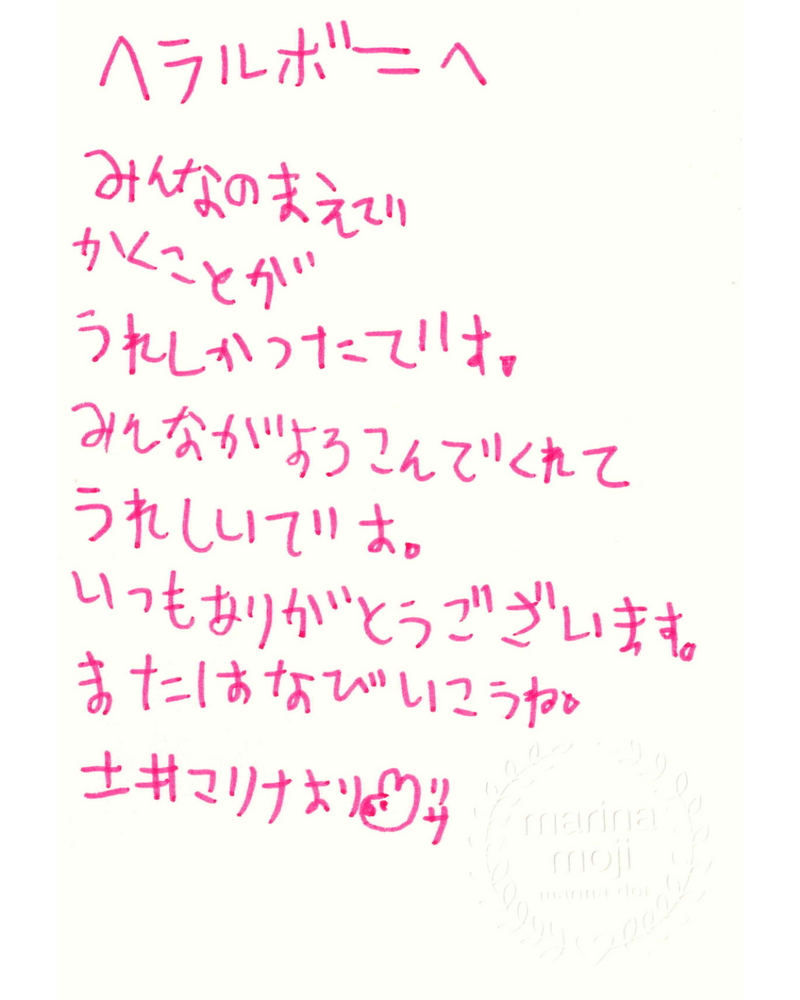 ヘラルボニーへ
みんなのまえで
かくことが
うれしかったです。
みんながよろこんでくれて
うれしいです。
いつもありがとうございます。
またはなびいこうね。
土井マリナより
marina
moji
marina doi